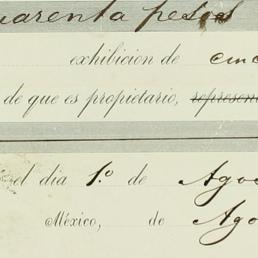 uarenta pesos
exhibición de cinc
de que es propietario, represen
el dia 1.º de Ago
México, de Ago